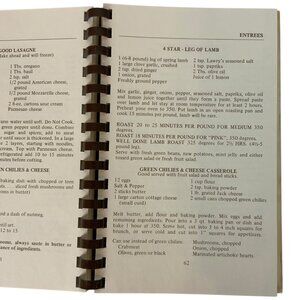 GOOD LASAGNE
(ake ahead and will freeze)
1 Tbs. oregano
1 Tbs. basil
2 tsp. salt
1/2 pound American cheese,
grated
1/2 pound Mozzarella cheese,
grated
8-oz. cartons sour cream
Parmesan cheese
ane water until soft. Do Not Cook.
green pepper until done. Combine
and sugar and spices; add to
until well combined. In a large
2 layers, starting with noodles,
cream. Top with Parmesan cheese.
refrigerated add 10 to 15 minutes
before cutting.
GREEN CHILIES & CHEESE
baking dish with chopped or torn
sliced fresh mushrooms and
and a dash of nutmeg.
until set.
12 to 15
ways sauté in butter or
balance of ingredients.
ENTREES
4 STAR - LEG OF LAMB
1 (6-8 pound) leg of spring lamb
1 large clove garlic, crushed
2 tsp. dried ginger
1 onion, grated
Freshly ground pepper
2 tsp. Lawry's seasoned salt
1 tsp. paprika
2 Tbs. olive oil
Juice of 1 lemon
Mix garlic, ginger, onion, pepper, seasoned salt, paprika, olive oil
and lemon juice together until they form a paste. Spread paste
over lamb and let stay at room temperature for at least 2 hours.
Preheat your oven to 400. Put lamb in an open roasting pan and
cook 15 minutes per pound, lamb will be rare.
ROAST 20 to 25 MINUTES PER POUND FOR MEDIUM 350
degrees.
ROAST 18 MINUTES PER POUND FOR "PINK", 350 degrees.
WELL DONE LAMB ROAST 325 degrees for 2½ HRS. (4½-5
pound leg).
Serve with fresh green beans, new potatoes, mint jelly and either
tossed green salad or fresh fruit salad
GREEN CHILIES & CHEESE CASSEROLE
Good served with fruit salad and bread sticks
12 eggs
Salt & Pepper
2 sticks butter
1 large carton cottage cheese
(small curd)
1 cup flour
2 tsp. baking powder
1 lb. grated Jack cheese
2 small cans chopped green chilies
Melt butter, add flour and baking powder. Mix eggs and add
remaining ingredients. Pour into a 3 qt. baking pan or dish and
bake 1 hour at 350. Serve hot, cut into 3 to 4 inch squares for
brunch, or serve cold and cut into 1" squares for appetizers.
Can use instead of green chilies:
Crabmeat
Olives, green or black
Mushrooms, chopped
Onions, chopped
Marinated artichoke hearts
62